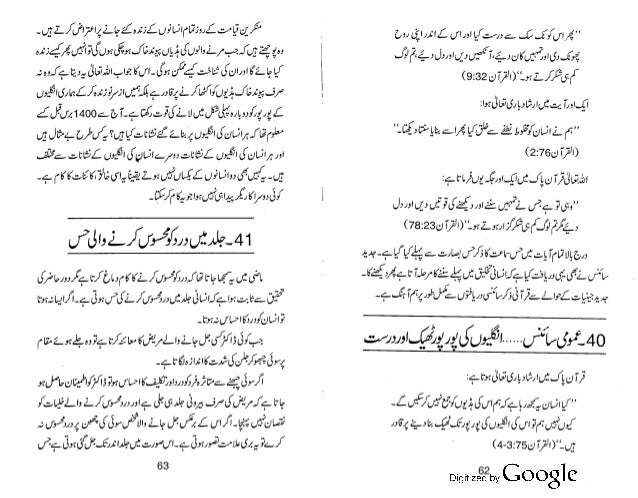 ’’پھر اس کو نک سک سے درست کیا اور اس کے اندر اپنی روح
پھونک دی اور تمہیں کان دیے، آنکھیں دیں اور دل دیے، تم لوگ
کم ہی شکر کرتے ہو۔‘‘ (القرآن 9:32)
ایک اور آیت میں ارشاد باری تعالیٰ ہوا:
’’ہم نے انسان کو مخلوط نطفے سے خلق کیا پھر اسے بنایا سنتا دیکھتا۔‘‘
(القرآن 2:76)
اللہ تعالیٰ قرآن پاک میں ایک اور جگہ یوں فرماتا ہے:
’’وہی تو ہے جس نے تمہیں سننے اور دیکھنے کی قوتیں دیں اور دل
دیے مگر تم لوگ کم ہی شکر گزار ہوتے ہو۔‘‘ (القرآن 78:23)
درج بالا تمام آیات میں حس سماعت کا ذکر حس بصارت سے پہلے کیا گیا ہے۔ جدید
سائنس نے بھی یہی دریافت کیا ہے کہ انسانی تخلیق میں پہلے سننے کا مرحلہ آتا ہے پھر دیکھنے کا۔
جدید جینیات کے حوالے سے قرآنی ذکر سائنسی دریافتوں سے مکمل طور پر ہم آہنگ ہے۔
40۔ عمومی سائنس...... انگلیوں کی پور پور ٹھیک اور درست
قرآن پاک میں ارشاد باری تعالیٰ ہوتا ہے:
’’کیا انسان یہ سمجھ رہا ہے کہ ہم اس کی ہڈیوں کو جمع نہیں کر سکیں گے۔
کیوں نہیں، ہم تو اس کی انگلیوں کی پور پور تک ٹھیک بنا دینے پر قادر
ہیں۔‘‘ (القرآن 75:3-4)
62
منکرین قیامت کے روز تمام انسانوں کے زندہ کئے جانے پر اعتراض کرتے ہیں۔
وہ پوچھتے ہیں کہ جب مرنے والوں کی ہڈیاں پیوند خاک ہو چکی ہوں گی تو انہیں پھر کیسے زندہ
کیا جائے گا اور ان کی شناخت کیسے ممکن ہوگی۔ اس کا جواب اللہ تعالیٰ یہ دیتا ہے کہ وہ نہ
صرف پیوند خاک ہڈیوں کو اکٹھا کرنے پر قادر ہے بلکہ ہمیں از سر نو زندہ کر کے ہماری انگلیوں
کے پور پور کو دوبارہ پہلی شکل میں لانے کی قوت رکھتا ہے۔ آج سے 1400 برس قبل کسے
معلوم تھا کہ ہر انسان کی انگلیوں پر بنائے گئے نشانات کیا ہیں؟ یہ کس طرح بے مثال ہیں
اور ہر انسان کی انگلیوں کے نشانات دوسرے انسان کی انگلیوں کے نشانات سے مختلف
ہیں۔ یہ کہیں بھی دو انسانوں کے یکساں نہیں ہوتے یقیناً یہ اسی خالق کائنات کا کام ہے۔
کوئی دوسرا کاریگر پیدا ہی نہیں ہوا جو یہ کام کر سکتا۔
41۔ جلد میں درد کو محسوس کرنے والی حس
ماضی میں یہ سمجھا جاتا تھا کہ درد کو محسوس کرنے کا کام دماغ کرتا ہے مگر دور حاضر کی
تحقیق سے ثابت ہوا ہے کہ انسانی جلد میں درد محسوس کرنے کی حس ہوتی ہے۔ اگر ایسا نہ ہوتا
تو انسان کو درد کا احساس نہ ہوتا۔
جب کوئی ڈاکٹر کسی جل جانے والے مریض کا معائنہ کرتا ہے تو وہ جلے ہوئے مقام
پر سوئی چبھو کر جلن کی شدت کا اندازہ لگاتا ہے۔
اگر سوئی چبھنے سے متاثرہ فرد کو درد اور تکلیف کا احساس ہو تو ڈاکٹر کو اطمینان حاصل ہو
جاتا ہے کہ مریض کی صرف بیرونی جلد ہی جلی ہے اور درد محسوس کرنے والے خلیات کو
نقصان نہیں پہنچا۔ اگر اس کے برعکس جل جانے والا شخص سوئی کی چبھن پر درد محسوس نہ
کرے تو یہ بری علامت تصور ہوتی ہے۔ اس صورت میں جلد اندر تک جل گئی ہوتی ہے جس
63
Digitized by Google